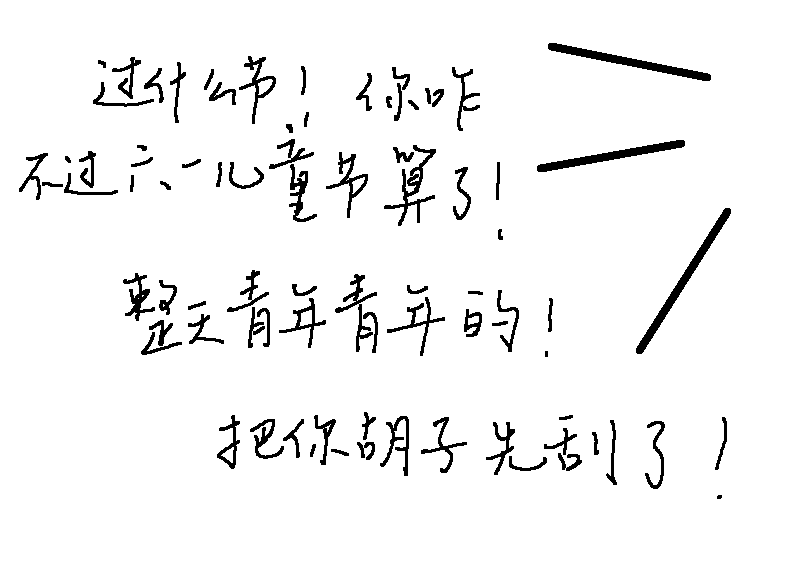 过什么节！你咋
不过六一儿童节算了！
整天青年青年的！
把你胡子先刮了！